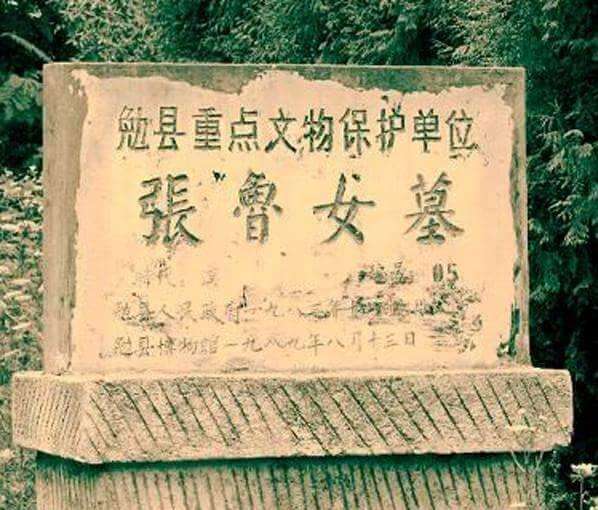 勉县重点文物保护单位
張魯女墓
时代：汉 05
勉县人民政府一九八三年
勉县博物館一九八九年八月十三日